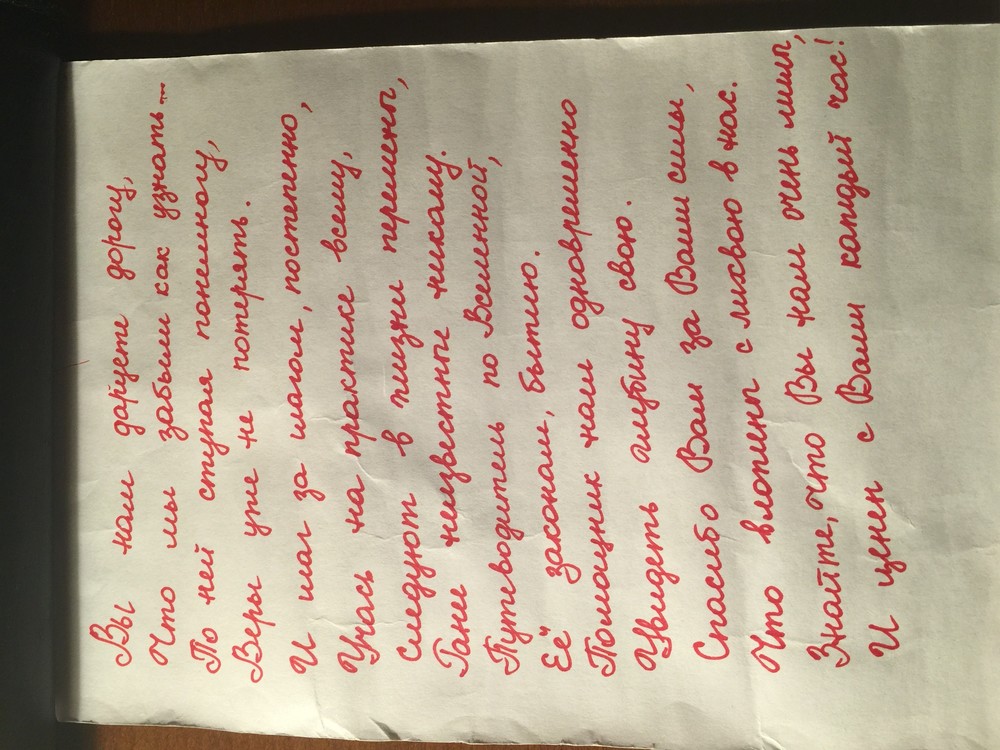 Вы нам даруете дорогу,
Что мы забыли как узнать...
По ней ступая понемногу,
Веры уже не потерять.
И шаг за шагом, постепенно,
Учась на практике всему,
Следуют в жизни перемены,
Ране неизвестные никому.
Путеводитель по Вселенной,
Её законам, бытию.
Помощник нам одновременно
Увидеть глубину свою.
Спасибо Вам за Ваши силы,
Что вложены с лихвою в нас.
Знайте, что Вы нам очень милы,
И ценен с Вами каждый час!